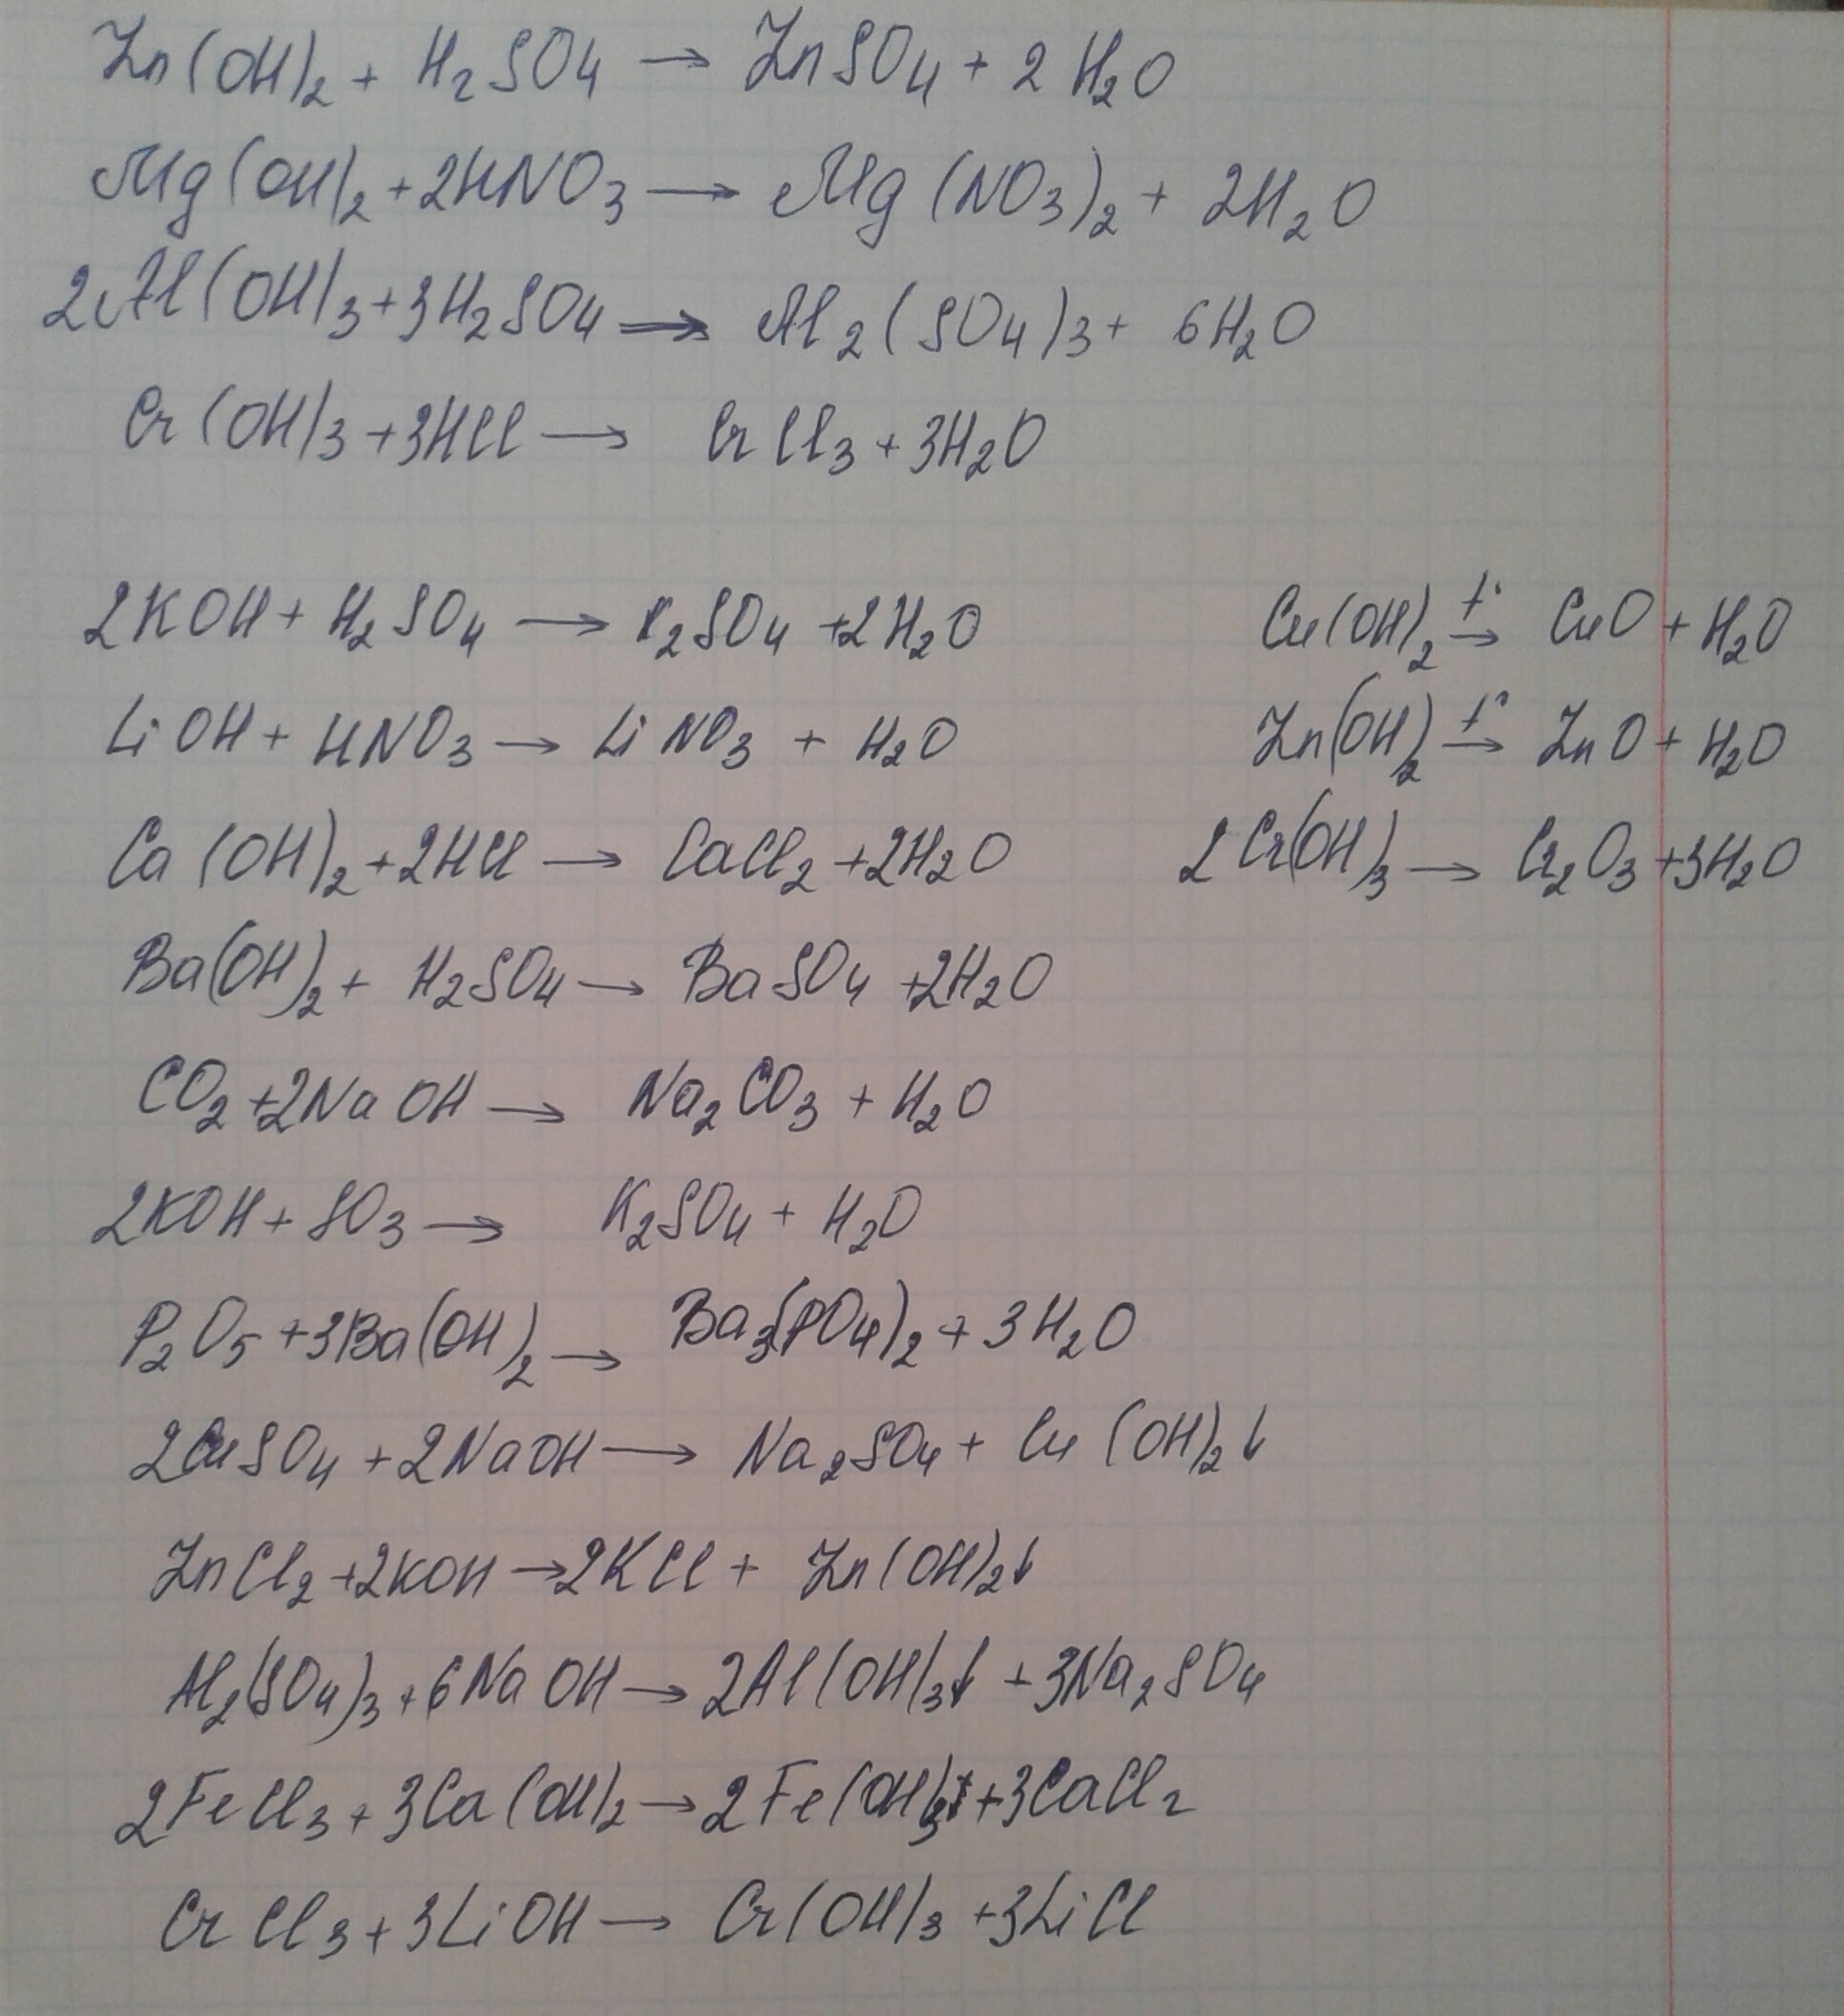 Zn(OH)₂ + H₂SO₄ → ZnSO₄ + 2 H₂O
Mg(OH)₂ + 2HNO₃ → Mg(NO₃)₂ + 2H₂O
2Al(OH)₃ + 3H₂SO₄ → Al₂(SO₄)₃ + 6H₂O
Cr(OH)₃ + 3HCl → CrCl₃ + 3H₂O
2KOH + H₂SO₄ → K₂SO₄ + 2H₂O
LiOH + HNO₃ → LiNO₃ + H₂O
Ca(OH)₂ + 2HCl → CaCl₂ + 2H₂O
Ba(OH)₂ + H₂SO₄ → BaSO₄ + 2H₂O
CO₂ + 2NaOH → Na₂CO₃ + H₂O
2KOH + SO₃ → K₂SO₄ + H₂O
P₂O₅ + 3Ba(OH)₂ → Ba₃(PO₄)₂ + 3H₂O
2CuSO₄ + 2NaOH → Na₂SO₄ + Cu(OH)₂↓
ZnCl₂ + 2KOH → 2KCl + Zn(OH)₂↓
Al₂(SO₄)₃ + 6NaOH → 2Al(OH)₃↓ + 3Na₂SO₄
2FeCl₃ + 3Ca(OH)₂ → 2Fe(OH)₃↓ + 3CaCl₂
CrCl₃ + 3LiOH → Cr(OH)₃ + 3LiCl
Cu(OH)₂ t° → CuO + H₂O
Zn(OH)₂ t° → ZnO + H₂O
2Cr(OH)₃ → Cr₂O₃ + 3H₂O